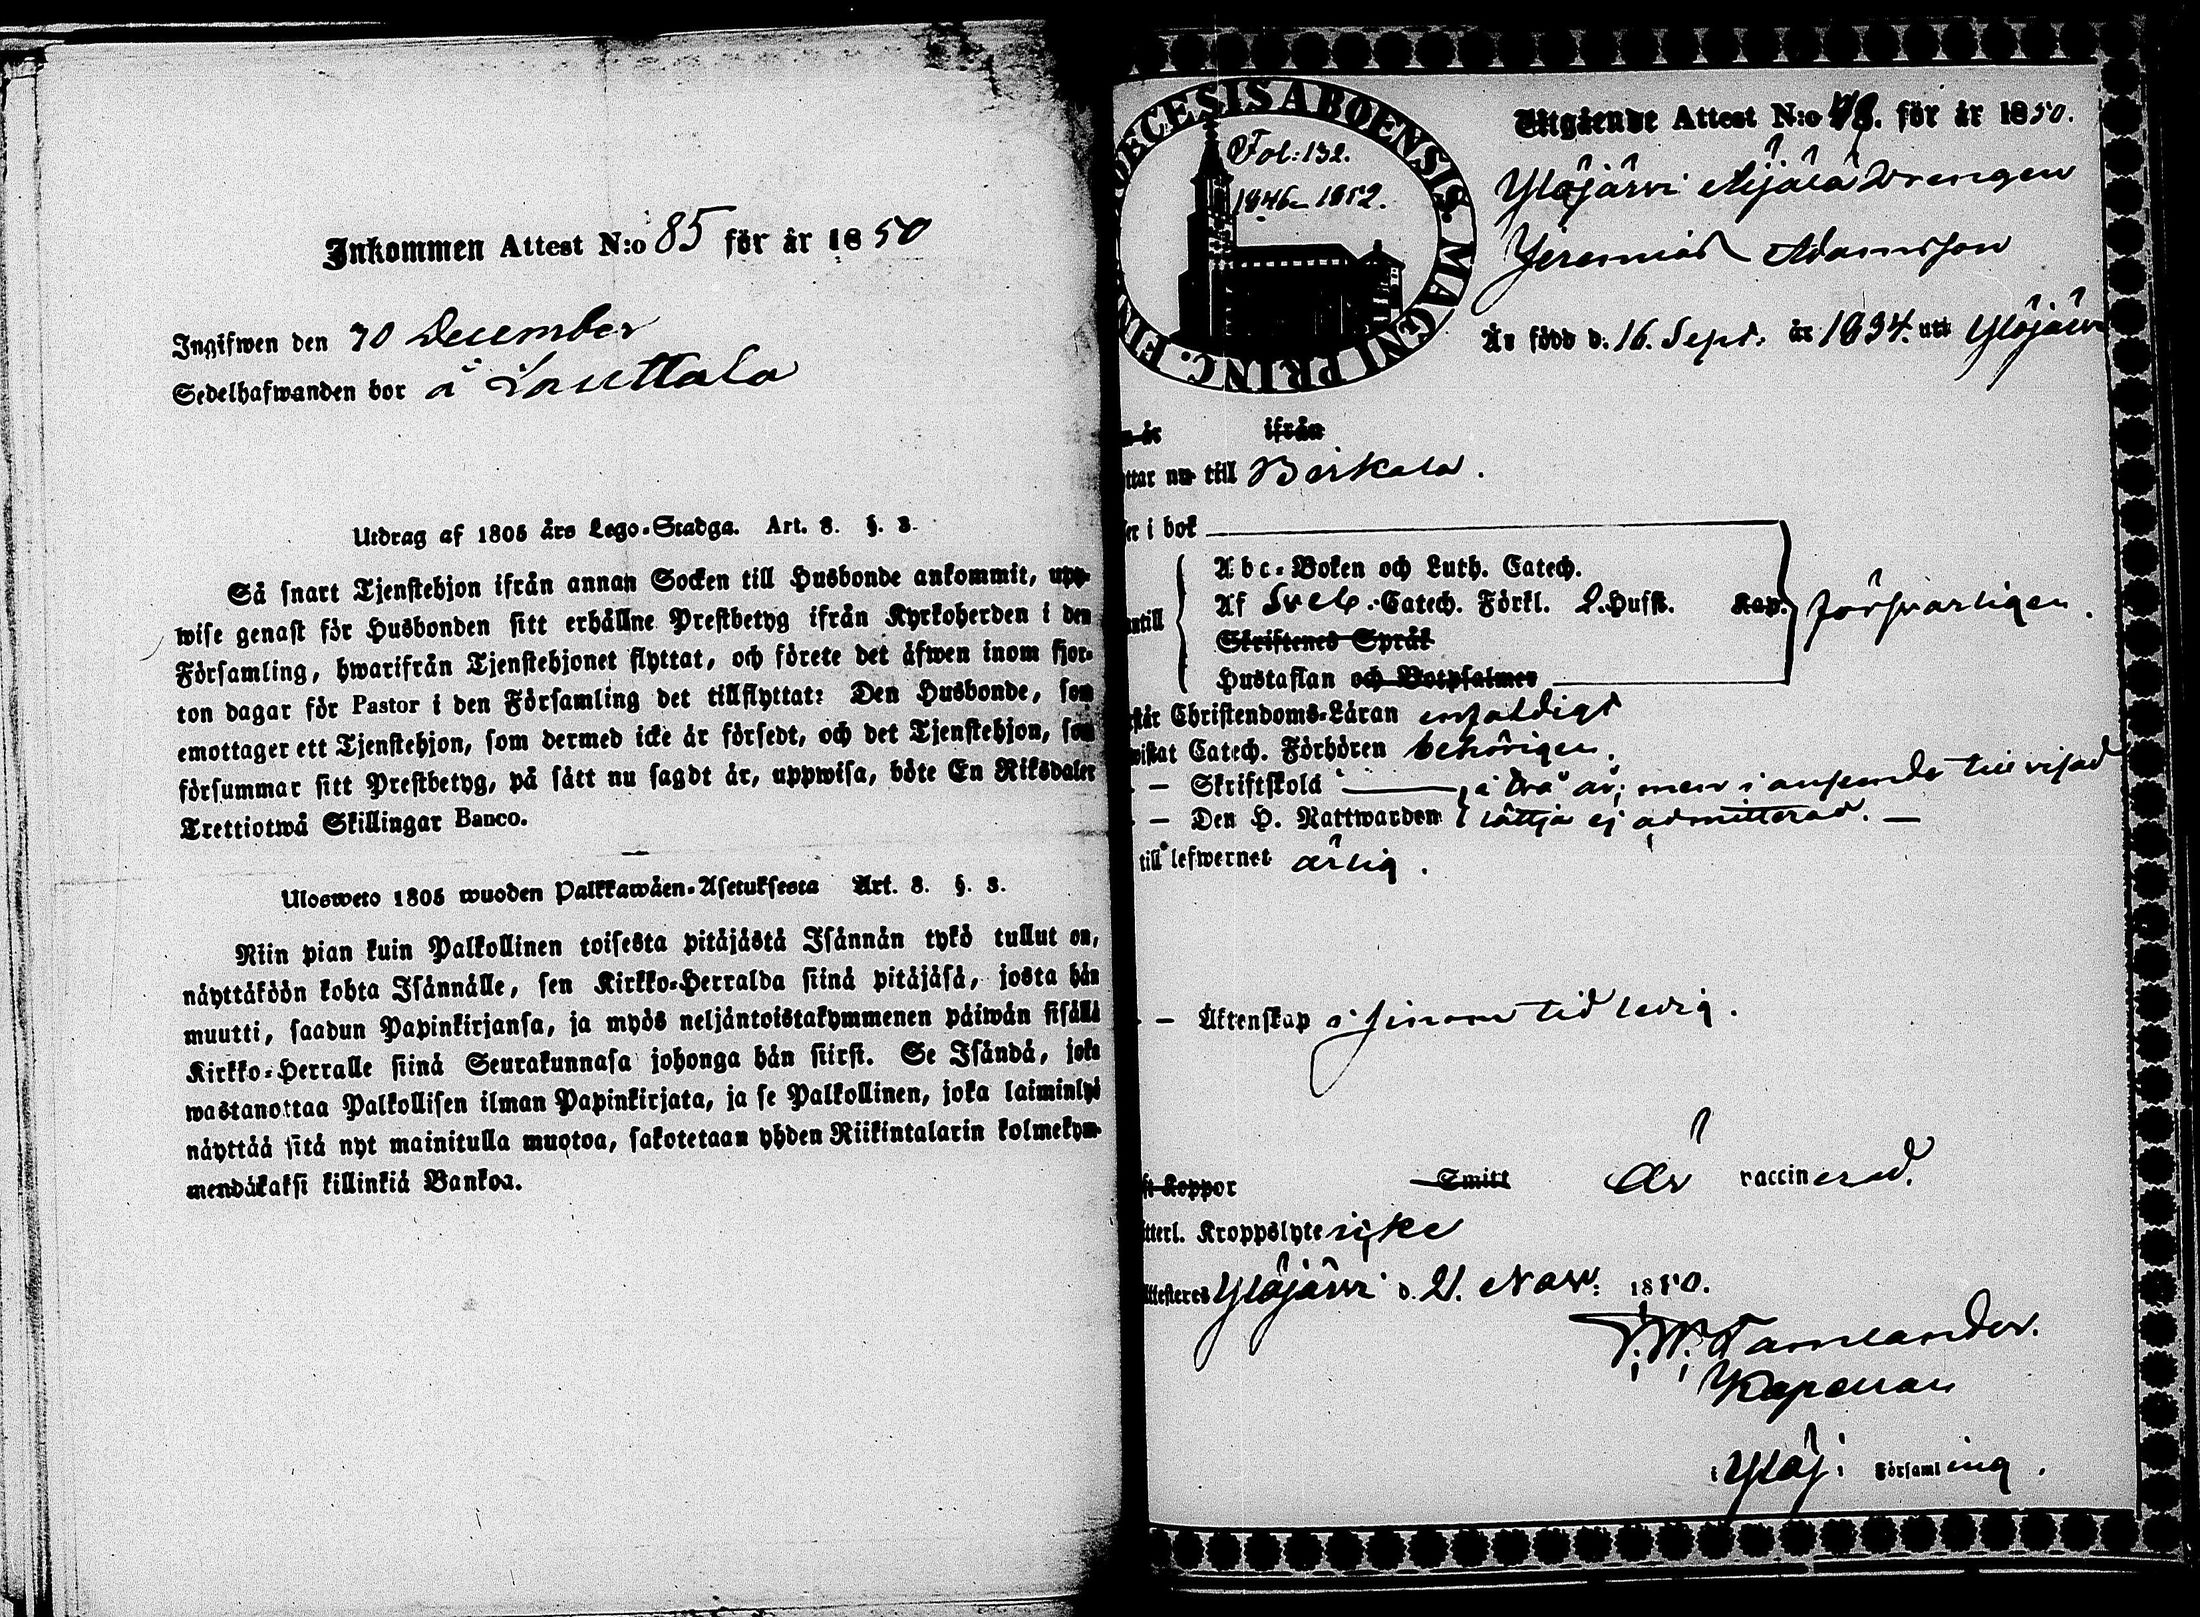 Inkommen Attest N:o 85 för år 1850
Ingifwen den 30 December
Sedelhafwanden bor å Lauttala
Utdrag af 1805 års Lego-Stadga. Art. 8. §. 3.
Så snart Tjenstehjon ifrån annan Socken till Husbonde ankommit, upp-
wise genast för Husbonden sitt erhållne Prestbetyg ifrån Kyrkoherden i den
Församling, hwarifrån Tjenstehjonet flyttat, och förete det äfwen inom fjor-
ton dagar för Pastor i den Församling det tillflyttat: Den Husbonde, som
emottager ett Tjenstehjon, som dermed icke är försedt, och det Tjenstehjon, som
försummar sitt Prestbetyg, på sätt nu sagdt är, uppwisa, böte En Riksdaler
Trettiotwå Skillingar Banco.
Ulosweto 1805 wuoden Palkkawäen-Asetuksesta Art. 8. §. 3.
Niin pian kuin Palkollinen toisesta pitäjästä Isännän tykö tullut on,
näyttäköön kohta Isännälle, sen Kirkko-Herralda siinä pitäjäsä, josta hän
muutti, saadun Papinkirjansa, ja myös neljäntoistakymmenen päiwän sisällä
Kirkko-Herralle siinä Seurakunnasa johonga hän siirsi. Se Isändä, joka
wastanottaa Palkollisen ilman Papinkirjata, ja se Palkollinen, joka laiminlyö
näyttää sitä nyt mainitulla muotoa, sakotetaan yhden Riikintalarin kolmekym-
mendäkaksi killinkiä Bankoa.
DIOECESIS ABOENSIS. MAGNI PRINC. FIN
Fol: 132.
1846-1852.
Utgående Attest N:o 48. för år 1850.
Ylöjärvi Äijälä Drengen
Jeremias Adamsson
Är född d. 16. Sept. år 1834. uti Ylöjärvi
n år ifrån
ttar nu till Birkala.
er i bok
Abc-Boken och Luth. Catech.
Af Sveb. Catech. Förkl. 2. Hufst. Kap. försvarligen.
antill
Skriftenes Språk
Hustaflan och Botpsalmer
står Christendoms-Läran enfaldigt
wistat Catech. Förhören behörigen.
— Skriftskola i två år; men i anseende till visad
— Den H. Nattwarden lättja ej admitterad. —
till lefwernet ärlig.
— Äktenskap i sinom tid ledig.
ft Koppor Smitt Är vaccinerad.
tterl. Kroppslyte icke
Attesteres Ylöjärvi d. 21. Nov. 1850.
Tamlander.
Kapellan
i Ylöj: Församling.